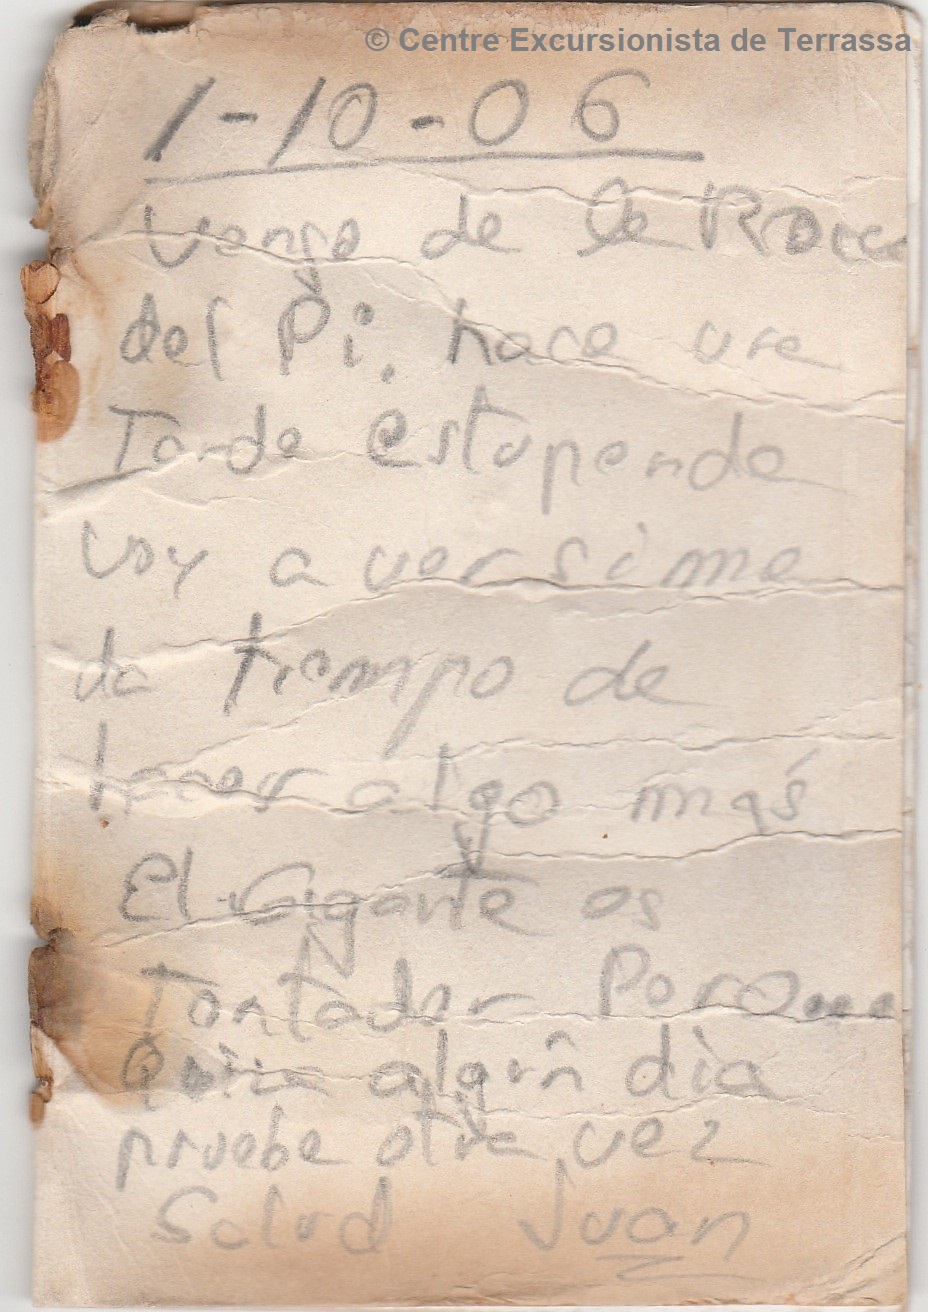 © Centre Excursionista de Terrassa
1-10-06
Vengo de la Roca
del Pi. hace una
Tarde estupenda
Voy a ver si me
da tiempo de
hacer algo más
El Gigante es
Tentador Pero
Quiza algún dia
pruebe otra vez
Salud Juan